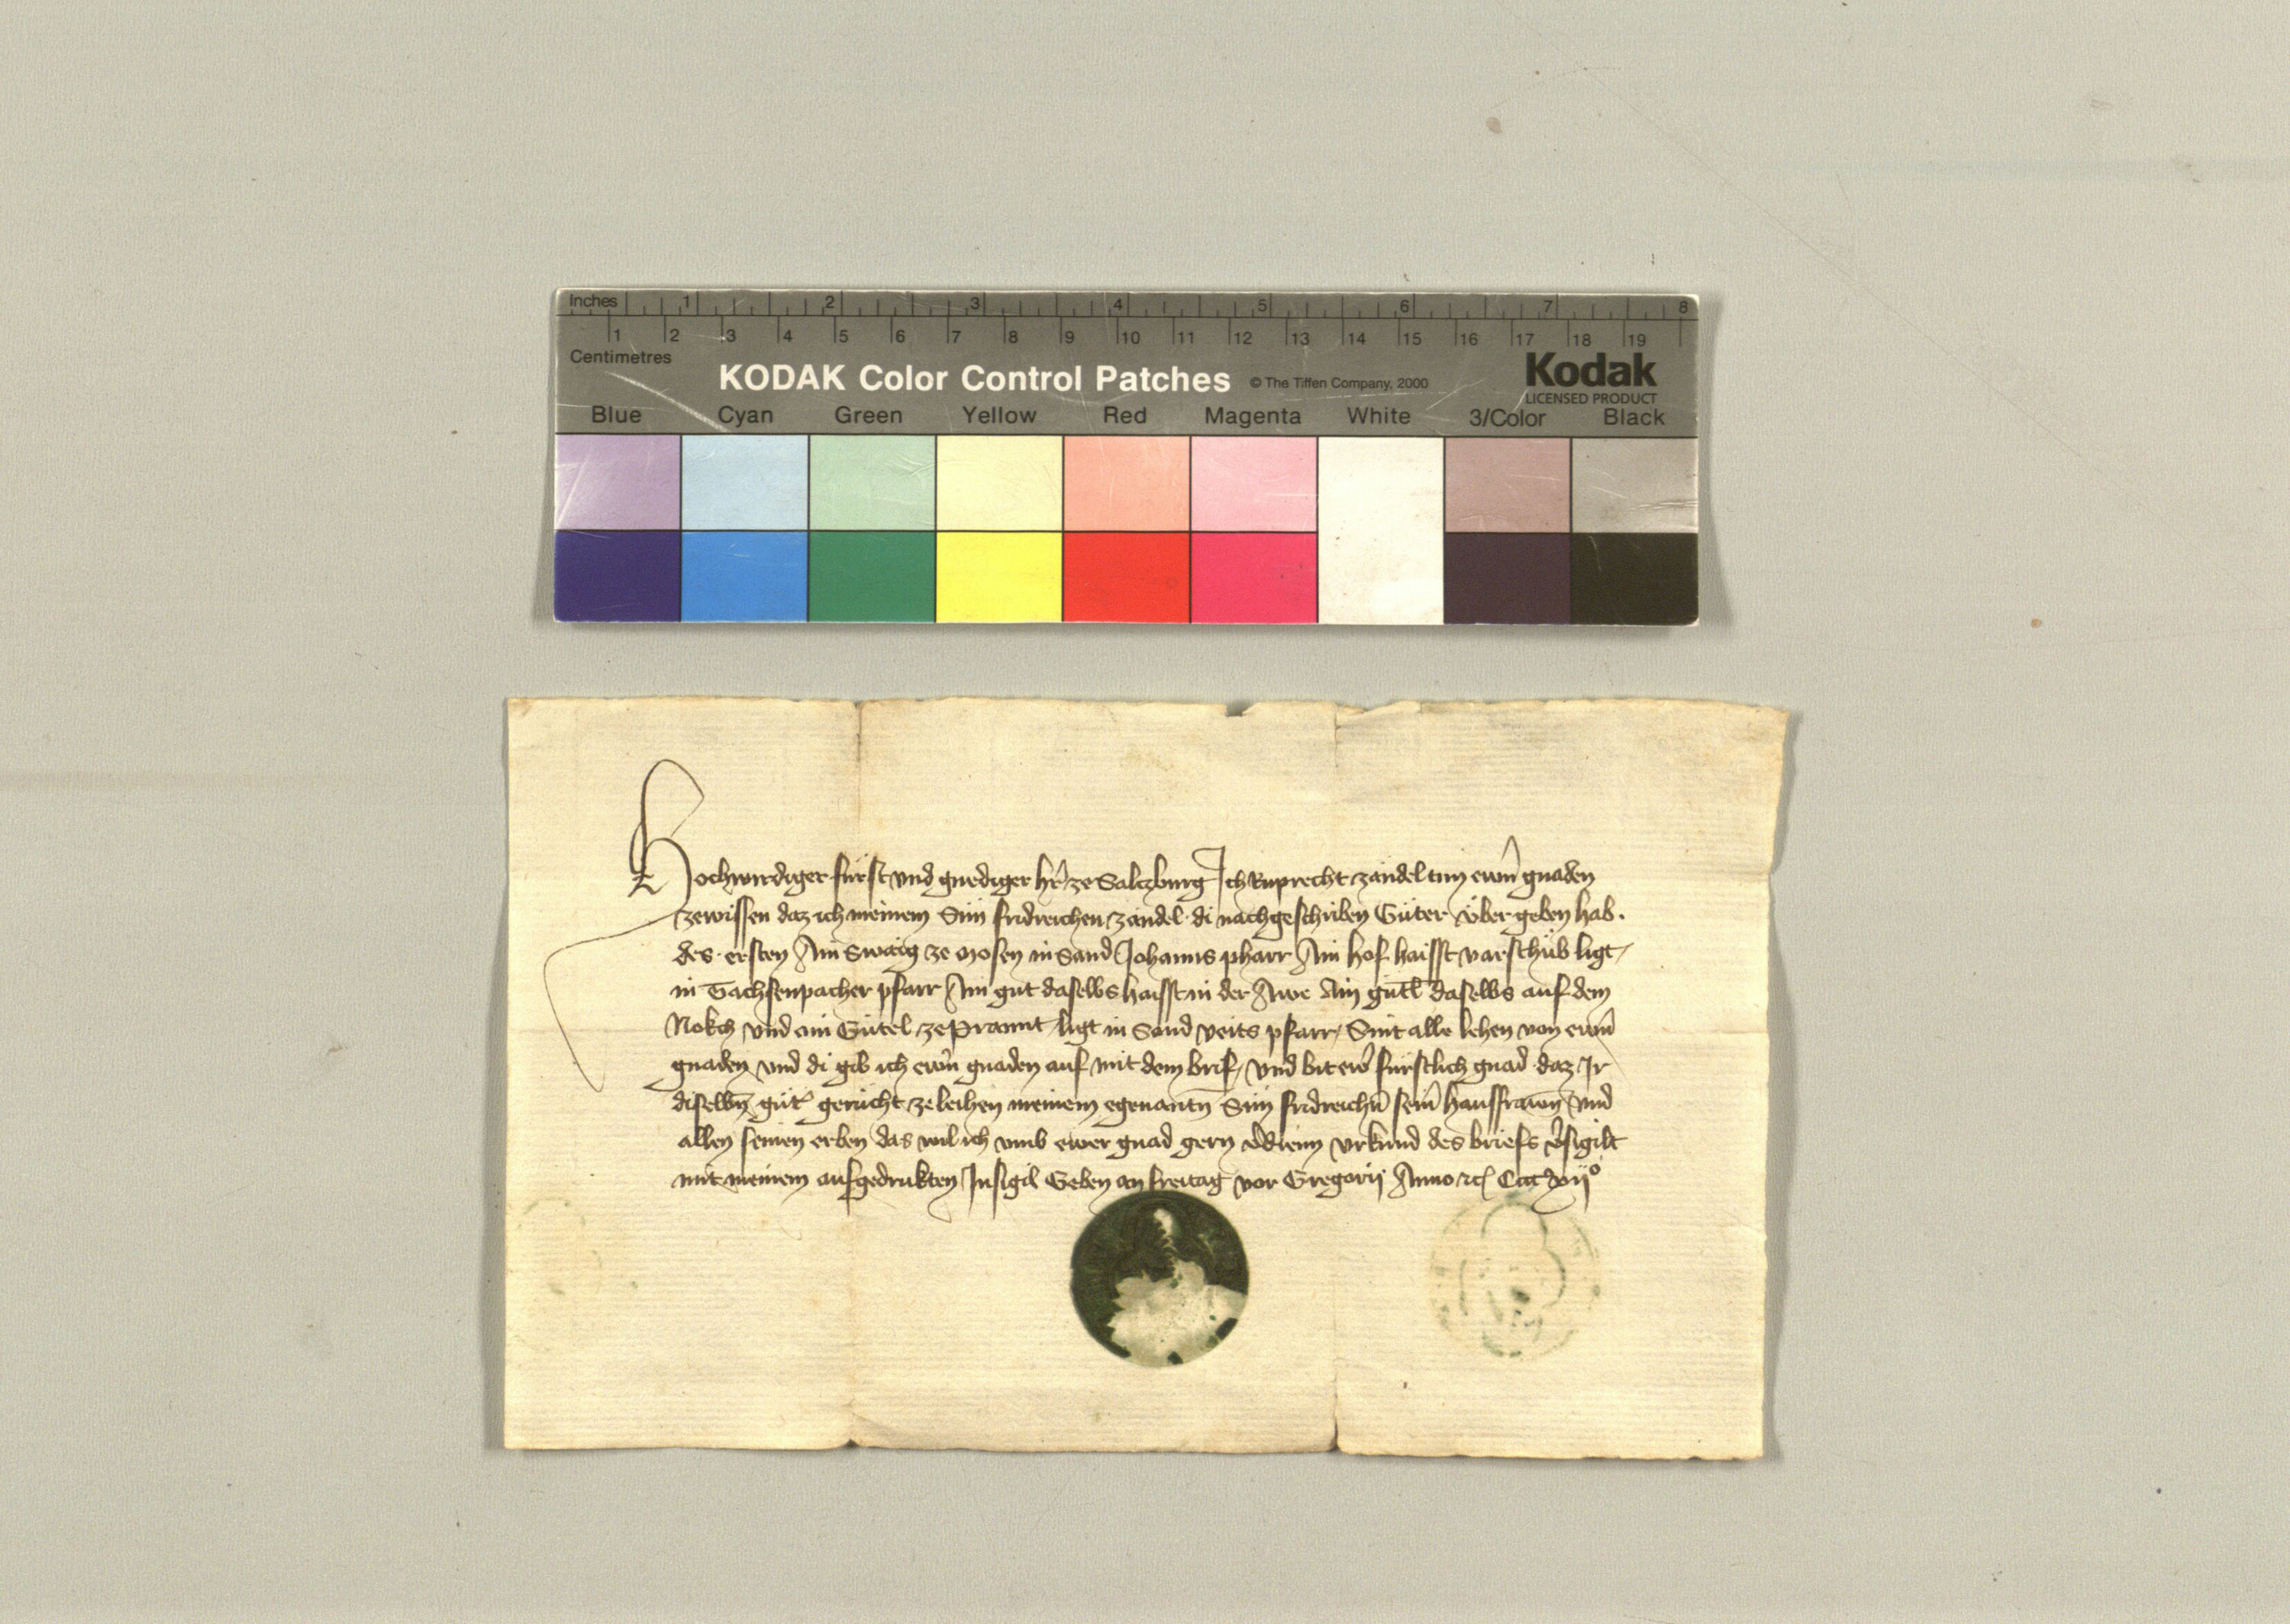 Inches 1 2 3 4 5 6 7 8
1 2 3 4 5 6 7 8 9 10 11 12 13 14 15 16 17 18 19
Centimetres
KODAK Color Control Patches © The Tiffen Company, 2000 Kodak
LICENSED PRODUCT
Blue Cyan Green Yellow Red Magenta White 3/Color Black
Hochwirdiger fürst vnd gnediger hr̄ ze Salczburg Ich Ruprecht zändel tun ewrn̄ gnaden
zewissen daz ich meinem Sun fridreichen zändel di nachgeschriben Güter vber geben hab.
des ersten Ain Swaig ze Mosen in Sand Johanns pharr Ain hof haisst varschüb ligt
in Tachsenpacher pfarr Ain gut daselbs haisst in der Awe Ain gütl daselbs auf dem
Nokch vnd ain Gütel ze Prannt ligt in Sand veits pfarr Sint alle lehen von ewrn̄
gnaden vnd di gib ich ewrn̄ gnaden auf mit dem brif vnd bit ewr̄ fürstlich gnad daz Ir
diselbn̄ güt̄ gerücht ze leihen meinem egenantn̄ Sun fridreichn̄ sein̄ hausfrawn̄ vnd
allen seinen erben das wil ich vmb ewer gnad gern vrkund des briefs v̄sigilt
mit meinem aufgedrukten Insigil Geben an freitag vor Gregorij Anno